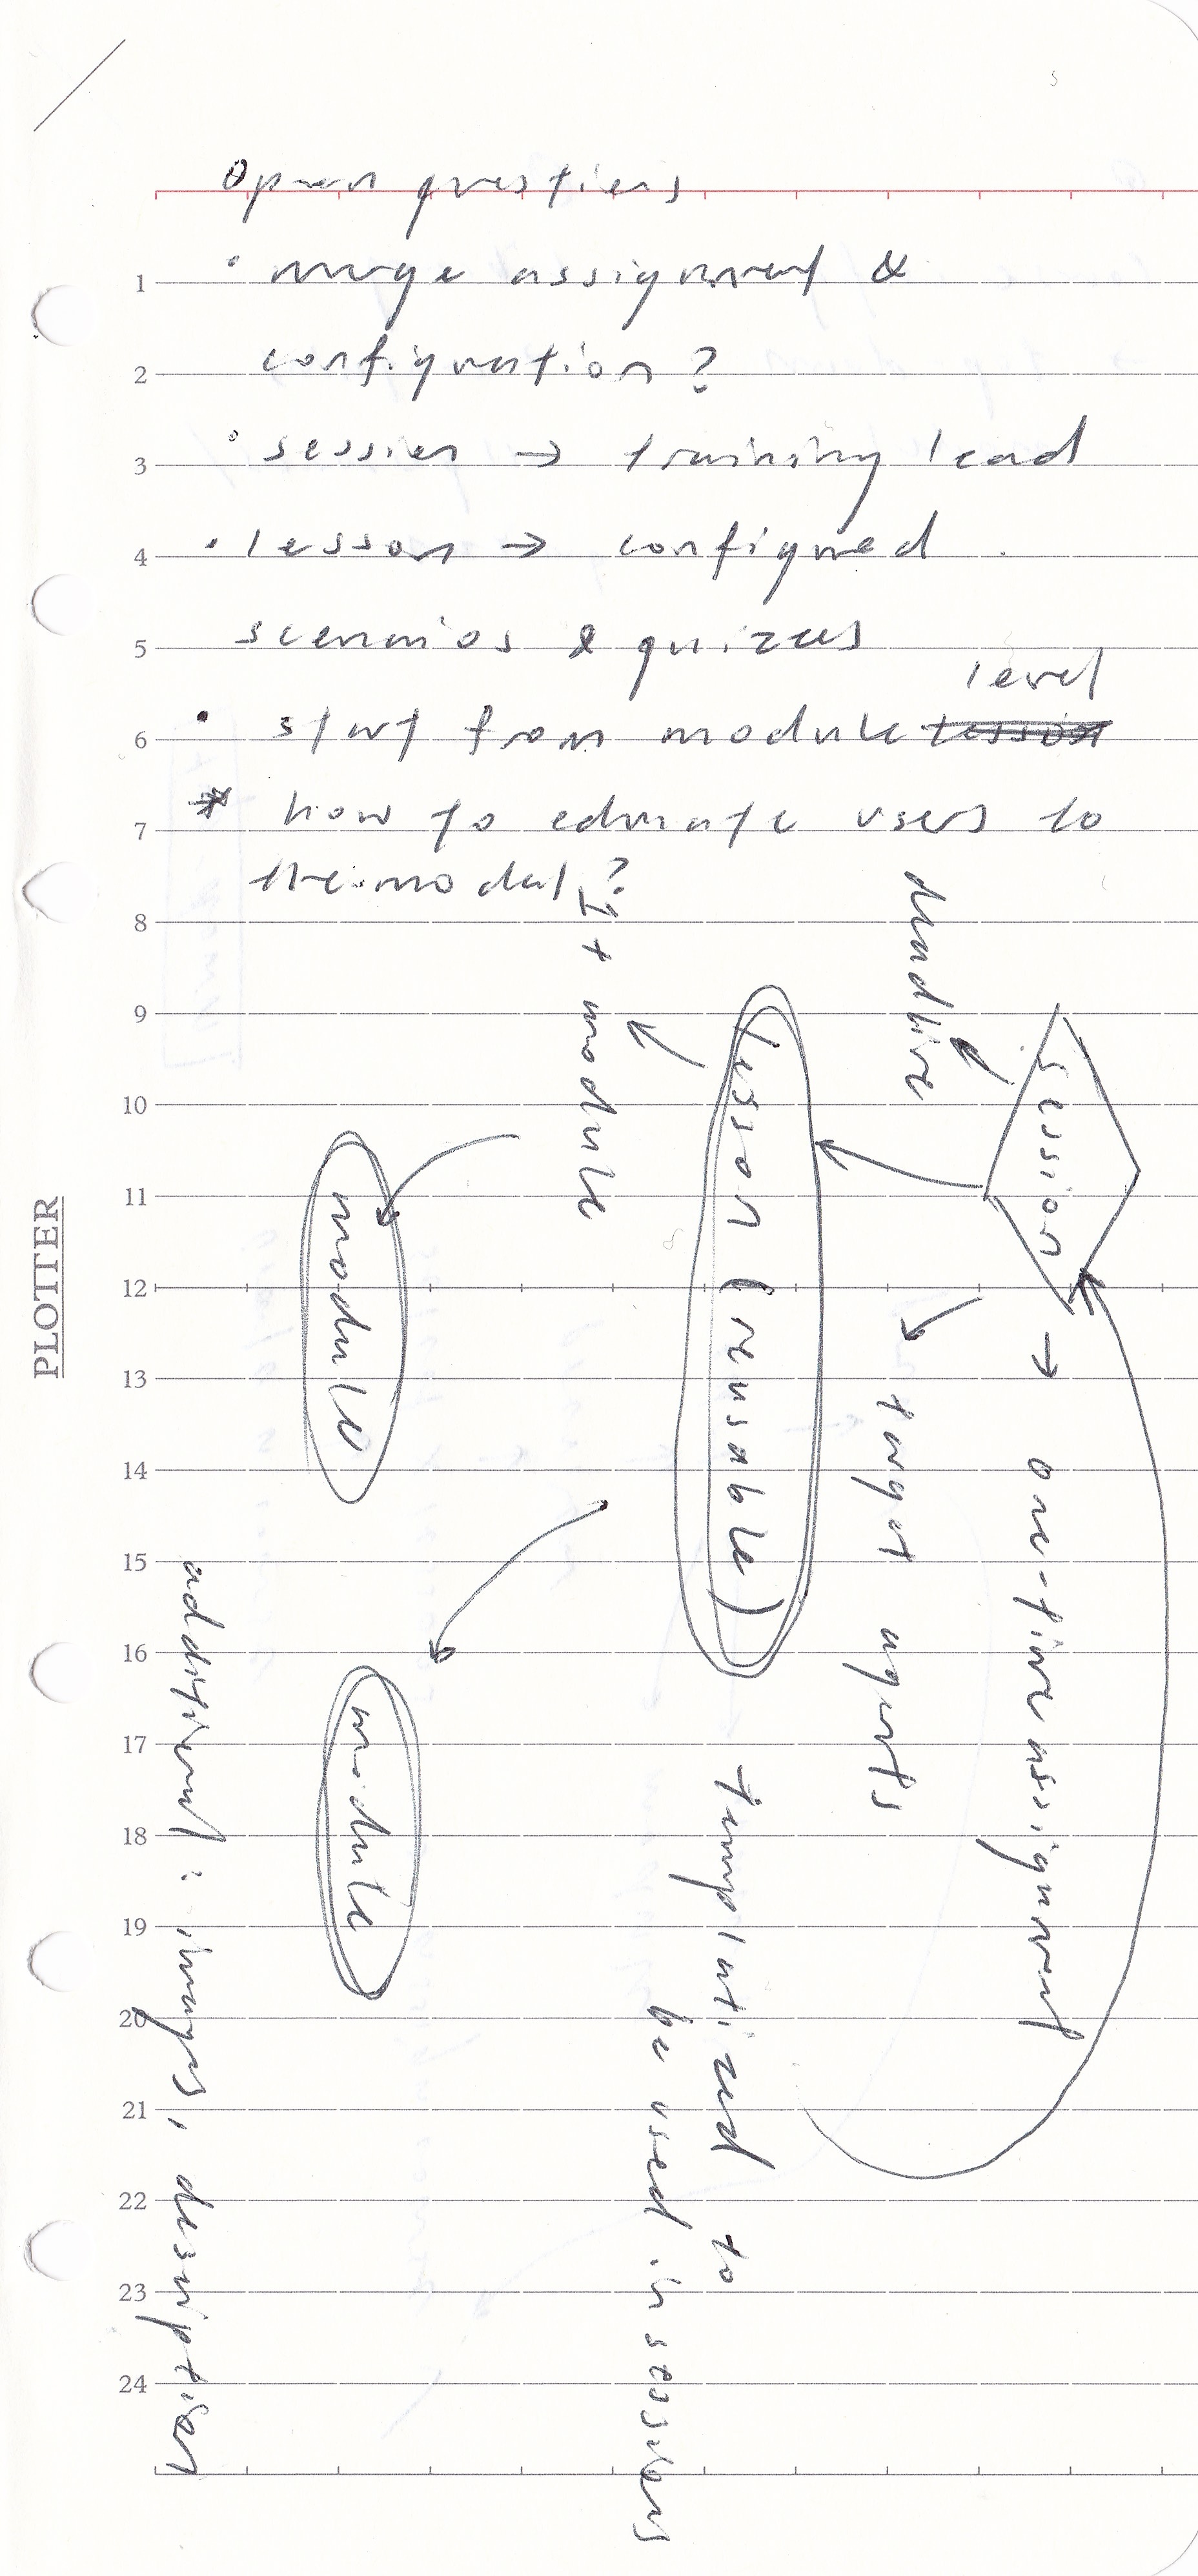 Open questions
· merge assignment &
configuration?
· session → training lead
· lesson → configured
scenarios & quizzes
level
· start from module lesson
* how to educate users to
the model?
session → one-time assignment
deadline
target agents
lesson (reusable)
templatized to
be used in sessions
1+ module
module
module
additional: images, description
1
2
3
4
5
6
7
8
9
10
11
12
13
14
15
16
17
18
19
20
21
22
23
24
PLOTTER